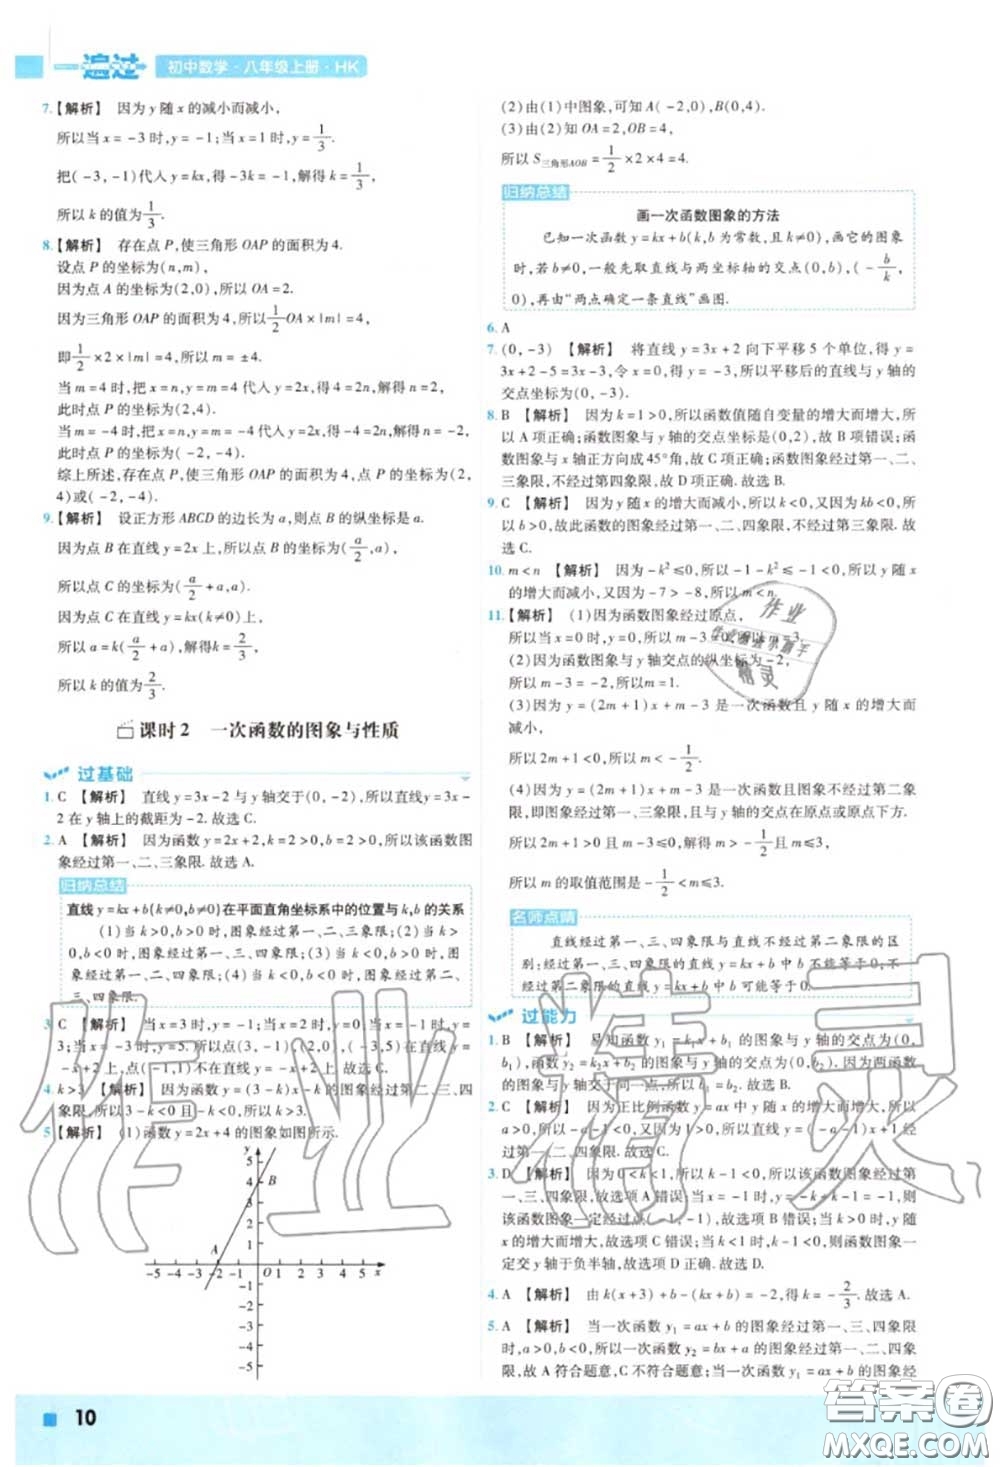 一遍过 初中数学·八年级上册·HK
7.【解析】 因为y随x的减小而减小，
所以当x=-3时,y=-1;当x=1时,y=1/3.
把(-3,-1)代入y=kx,得-3k=-1,解得k=1/3,
所以k的值为1/3.
8.【解析】 存在点P,使三角形OAP的面积为4.
设点P的坐标为(n,m),
因为点A的坐标为(2,0),所以OA=2.
因为三角形OAP的面积为4,所以1/2OA×|m|=4,
即1/2×2×|m|=4,所以m=±4.
当m=4时,把x=n,y=m=4代入y=2x,得2n=4,解得n=2,
此时点P的坐标为(2,4).
当m=-4时,把x=n,y=m=-4代入y=2x,得2n=-4,解得n=-2,
此时点P的坐标为(-2,-4).
综上所述,存在点P,使三角形OAP的面积为4,点P的坐标为(2,
4)或(-2,-4).
9.【解析】 设正方形ABCD的边长为a,则点B的纵坐标是a.
因为点B在直线y=2x上,所以点B的坐标为(a/2,a),
所以点C的坐标为(a/2+a,a).
因为点C在直线y=kx(k≠0)上,
所以a=k(a/2+a),解得k=2/3,
所以k的值为2/3.
课时2 一次函数的图象与性质
过基础
1.C 【解析】 直线y=3x-2与y轴交于(0,-2),所以直线y=3x-
2在y轴上的截距为-2.故选C.
2.A 【解析】 因为函数y=2x+2,k=2>0,b=2>0,所以该函数图
象经过第一、二、三象限.故选A.
归纳总结
直线y=kx+b(k≠0,b≠0)在平面直角坐标系中的位置与k,b的关系
(1)当k>0,b>0时,图象经过第一、二、三象限;(2)当k>
0,b<0时,图象经过第一、三、四象限;(3)当k<0,b>0时,图
象经过第一、二、四象限;(4)当k<0,b<0时,图象经过第二、
三、四象限.
3.C 【解析】 当x=3时,y=-1;当x=1时,y=1;当x=-1时,y=
3;当x=-5时,y=7.所以点(3,-1),(1,1),(-1,3)在直线y=
-x+2上,点(-5,3)不在直线y=-x+2上.故选C.
4.k>3 【解析】 因为函数y=(3-k)x-k的图象经过第二、三、四
象限,所以3-k<0且-k<0,所以k>3.
5.【解析】 (1)函数y=2x+4的图象如图所示.
y
5
4 B
3
2
A 1
-5 -4 -3 -2 -1 O 1 2 3 4 5 x
-1
-2
-3
-4
-5
(2)由(1)中图象,可知A(-2,0),B(0,4).
(3)由(2)知OA=2,OB=4,
所以S三角形AOB=1/2×2×4=4.
归纳总结
画一次函数图象的方法
已知一次函数y=kx+b(k,b为常数,且k≠0),画它的图象
时,若b≠0,一般先取直线与两坐标轴的交点(0,b),(-b/k,
0),再由“两点确定一条直线”画图.
6.A
7.(0,-3) 【解析】 将直线y=3x+2向下平移5个单位,得y=
3x+2-5=3x-3,令x=0,得y=-3,所以平移后的直线与y轴的
交点坐标为(0,-3).
8.B 【解析】 因为k=1>0,所以函数值随自变量的增大而增大,所
以A项正确;函数图象与y轴的交点坐标是(0,2),故B项错误;函
数图象与x轴正方向成45°角,故C项正确;函数图象经过第一、二、
三象限,不经过第四象限,故D项正确.故选B.
9.C 【解析】 因为y随x的增大而减小,所以k<0,又因为kb<0,所
以b>0,故此函数的图象经过第一、二、四象限,不经过第三象限.故
选C.
10.m<n 【解析】 因为-k²≤0,所以-1-k²≤-1<0,所以y随x
的增大而减小,又因为-7>-8,所以m<n.
11.【解析】 (1)因为函数图象经过原点,
所以当x=0时,y=0,所以m-3=0,所以m=3.
(2)因为函数图象与y轴交点的纵坐标为-2,
所以m-3=-2,所以m=1.
(3)因为y=(2m+1)x+m-3是一次函数且y随x的增大而
减小,
所以2m+1<0,所以m<-1/2.
(4)因为y=(2m+1)x+m-3是一次函数且图象不经过第二象
限,即图象经过第一、三象限,且与y轴的交点在原点或原点下方.
所以2m+1>0且m-3≤0,解得m>-1/2且m≤3,
所以m的取值范围是-1/2<m≤3.
名师点睛
直线经过第一、三、四象限与直线不经过第二象限的区
别:经过第一、三、四象限的直线y=kx+b中b不能等于0,不
经过第二象限的直线y=kx+b中b可能等于0.
过能力
1.B 【解析】 易知函数y₁=k₁x+b₁的图象与y轴的交点为(0,
b₁),函数y₂=k₂x+b₂的图象与y轴的交点为(0,b₂),因为两函数的
图象与y轴交于同一点,所以b₁=b₂.故选B.
2.C 【解析】 因为正比例函数y=ax的函数值y随x的增大而增大,所以
a>0,所以-a<0,所以-a-1<0,所以直线y=(-a-1)x+1经过第
一、二、四象限.故选C.
3.D 【解析】 因为0<k<1,所以k-1<0,所以该函数图象经过第
一、三、四象限,所以选项A错误;当x=-1时,y=-k+k-1=-1,则
该函数图象一定经过点(-1,-1),故选项B错误;当k>0时,y随x
的增大而增大,所以选项C错误;当0<k<1时,k-1<0,函数图象一
定交y轴于负半轴,故选项D正确.故选D.
4.A 【解析】 由k(x+3)+b-(kx+b)=-2,得k=-2/3.故选A.
5.A 【解析】 当一次函数y₁=ax+b的图象经过第一、三、四象限
时,a>0,b<0,所以一次函数y₂=bx+a的图象经过第一、二、四象
限,故A符合题意,C不符合题意;当一次函数y₁=ax+b的图象经
10
作业
精灵
作业精灵
答案圈
MXQE.COM